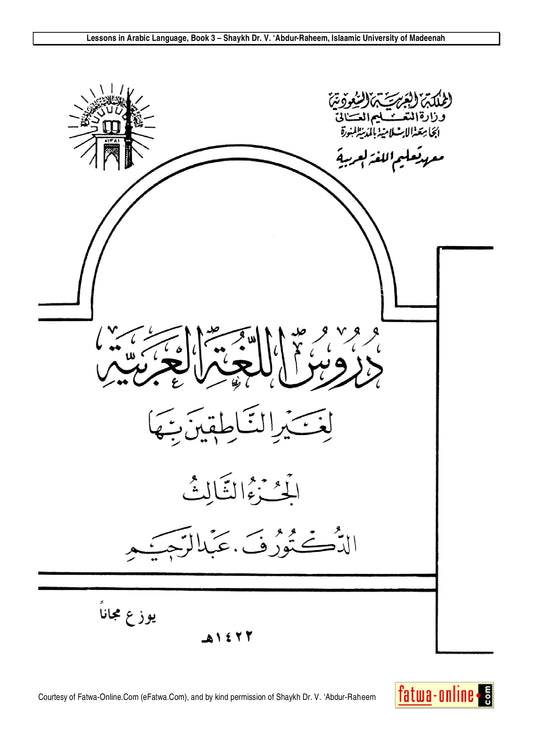 Lessons in Arabic Language, Book 3 – Shaykh Dr. V. ‘Abdur-Raheem, Islaamic University of Madeenah
المملكة العربية السعودية
وزارة التعليم العالي
الجامعة الإسلامية بالمدينة المنورة
معهد تعليم اللغة العربية
١٣٨١
دُرُوسُ اللُّغَةِ الْعَرَبِيَّةِ
لِغَيْرِ النَّاطِقِينَ بِهَا
الْجُزْءُ الثَّالِثُ
الدُّكْتُور ف . عَبْدالرَّحِيم
يوزع مجاناً
١٤٢٢هـ
Courtesy of Fatwa-Online.Com (eFatwa.Com), and by kind permission of Shaykh Dr. V. ‘Abdur-Raheem
fatwa-online.com